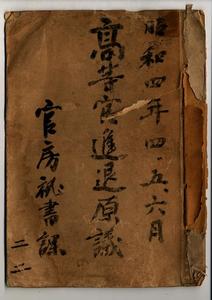 昭和四年四、五、六月
高等官進退原議
官房秘書課
二